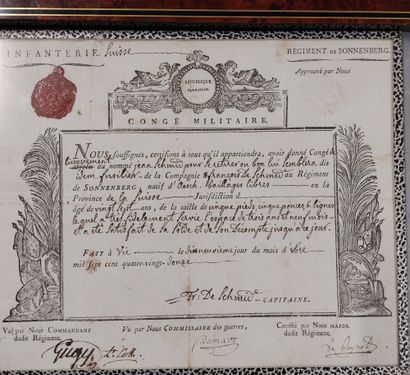 INFANTERIE. Suisse
RÉGIMENT DE SONNENBERG.
Approuvé par Nous
RÉPUBLIQUE
FRANÇOISE.
CONGÉ MILITAIRE.
NOUS soussignés, certifions à tous qu'il appartiendra, avoir donné Congé
au nommé jean Schmid pour se retirer ou bon lui semblera
fusilier de la Compagnie de Schmid au Régiment
de SONNENBERG natif d' Baillages libres en la
Province de la Suisse Jurisdiction d
âgé de vingt sept ans, de la taille de cinq pieds, cinq pouces 6 lignes
lequel a très fidelement servie l'espace de trois ans et neuf mois
et a été satisfait de sa Solde et de son Decompte jusqu'à ce jour.
FAIT à Vic le jour du mois d'
mil sept cent quatre-vingt-douze
De Schmid CAPITAINE.
Vu par Nous COMMANDANT
dudit Régiment.
Vu par Nous COMMISSAIRE des guerres,
Certifié par Nous MAJOR
dudit Régiment.